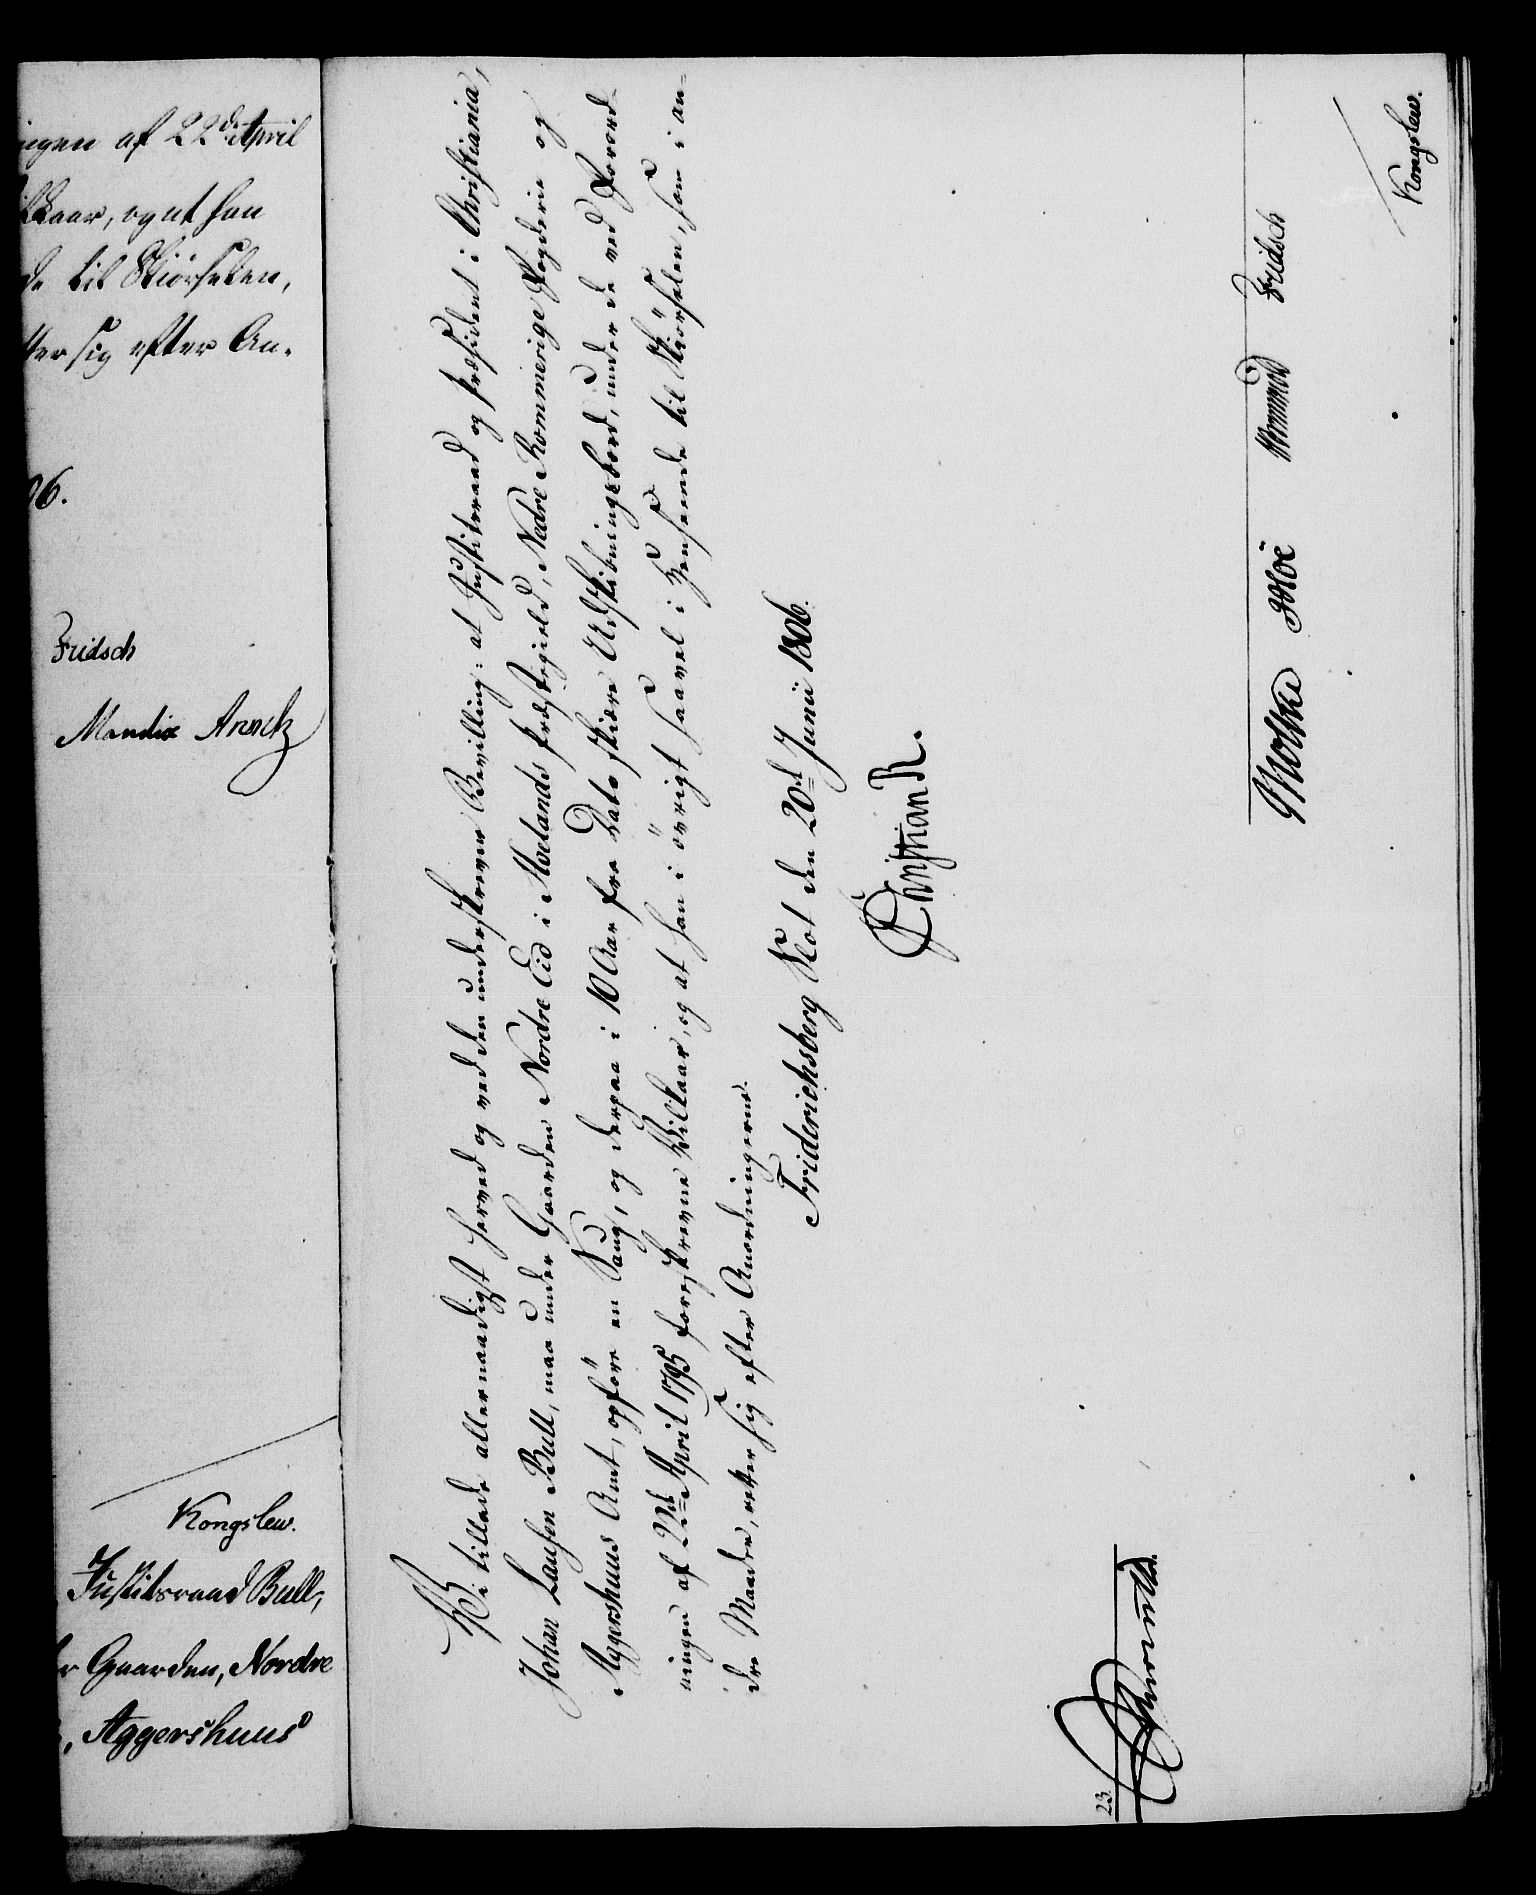 ingen af 22de April
ilkaar, og at han
de til Skiörselen,
tter sig efter An-
06.
Fridsch
Mandix Arntz
Kongslew.
Justitsraad Bull,
r Gaarden, Nordre
, Aggershuus
Vi tillade allernaadigst herved og ved den underskrevne Bevilling: at Justitsraad og Præsident i Christiania,
Johan Lausen Bull, maa under Gaarden Nordre Eid i Næs Præstegield, Nedre Rommerige Fogderie og
Aggershuus Amt, opföre en Saug, og derpaa i 10 Aar fra Dato skiære Udskibningsbord, under de ved Forord-
ningen af 22de April 1795 foreskrevne Vilkaar, og at han i övrigt saavel i Henseende til Skiörselen, som i an-
dre Maader, retter sig efter Anordningerne.
Friderichsberg Slot den 20de Junii 1806.
Christian R.
23.
Moltke
Fridsch
Kongslew.